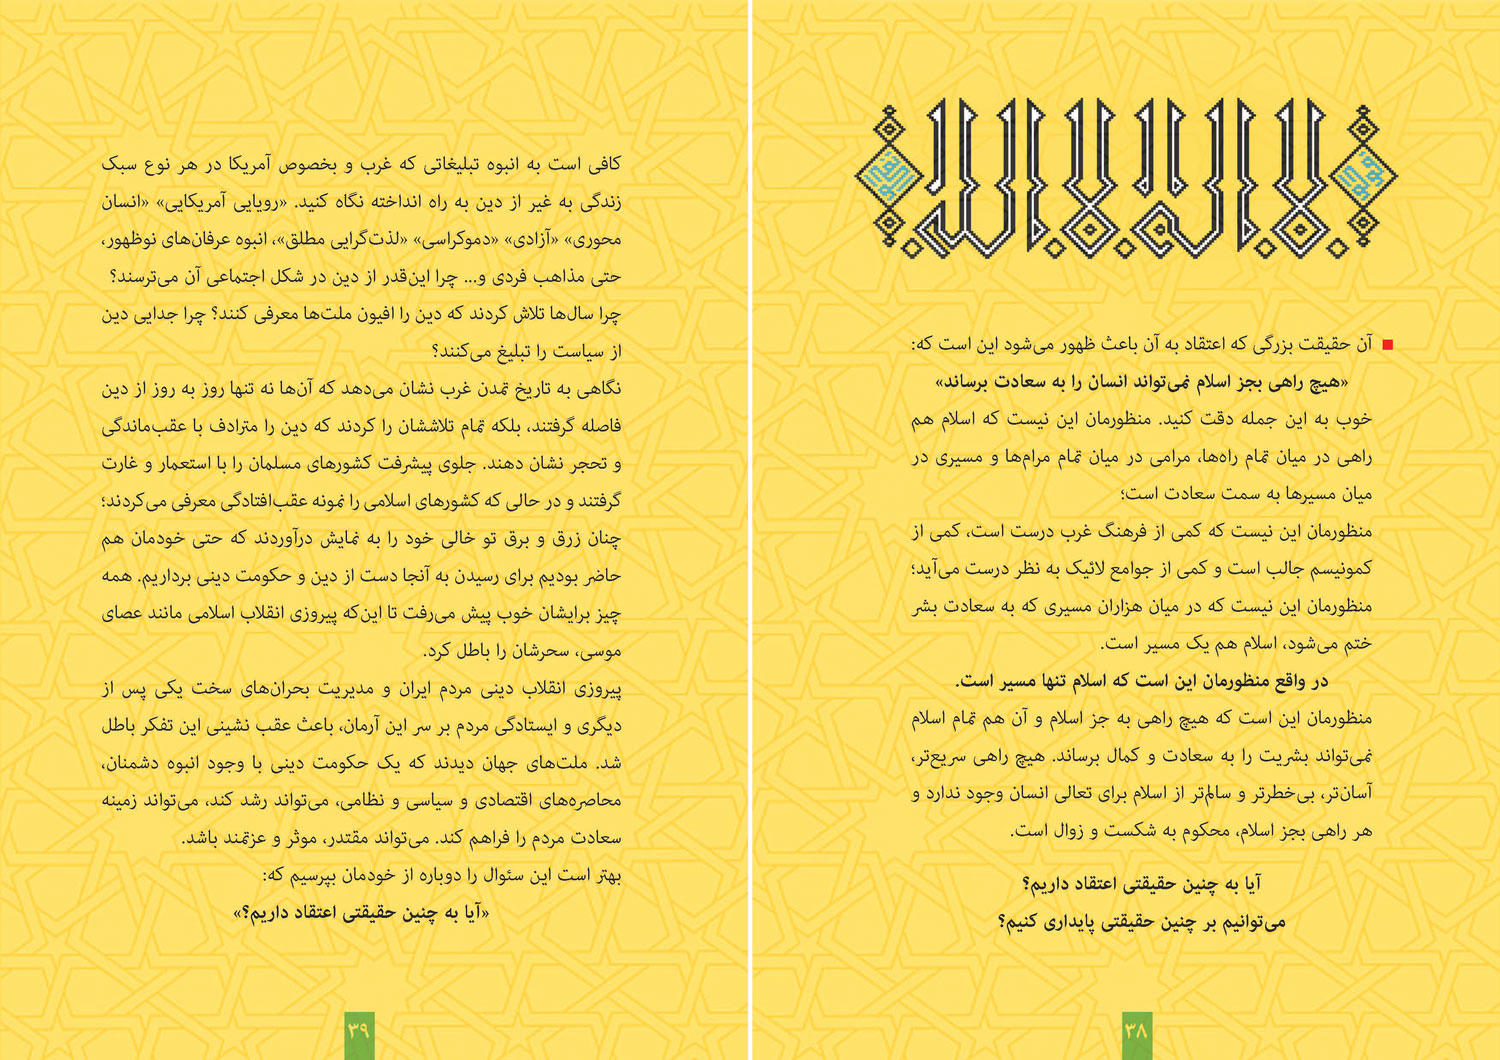 لا إله إلا الله
آن حقیقت بزرگی که اعتقاد به آن باعث ظهور می‌شود این است که:
«هیچ راهی بجز اسلام نمی‌تواند انسان را به سعادت برساند»
خوب به این جمله دقت کنید. منظورمان این نیست که اسلام هم
راهی در میان تمام راه‌ها، مرامی در میان تمام مرام‌ها و مسیری در
میان مسیرها به سمت سعادت است؛
منظورمان این نیست که کمی از فرهنگ غرب درست است، کمی از
کمونیسم جالب است و کمی از جوامع لائیک به نظر درست می‌آید؛
منظورمان این نیست که در میان هزاران مسیری که به سعادت بشر
ختم می‌شود، اسلام هم یک مسیر است.
در واقع منظورمان این است که اسلام تنها مسیر است.
منظورمان این است که هیچ راهی به جز اسلام و آن هم تمام اسلام
نمی‌تواند بشریت را به سعادت و کمال برساند. هیچ راهی سریع‌تر،
آسان‌تر، بی‌خطرتر و سالم‌تر از اسلام برای تعالی انسان وجود ندارد و
هر راهی بجز اسلام، محکوم به شکست و زوال است.
آیا به چنین حقیقتی اعتقاد داریم؟
می‌توانیم بر چنین حقیقتی پایداری کنیم؟
۳۸
کافی است به انبوه تبلیغاتی که غرب و بخصوص آمریکا در هر نوع سبک
زندگی به غیر از دین به راه انداخته نگاه کنید. «رویایی آمریکایی» «انسان
محوری» «آزادی» «دموکراسی» «لذت‌گرایی مطلق»، انبوه عرفان‌های نوظهور،
حتی مذاهب فردی و... چرا این‌قدر از دین در شکل اجتماعی آن می‌ترسند؟
چرا سال‌ها تلاش کردند که دین را افیون ملت‌ها معرفی کنند؟ چرا جدایی دین
از سیاست را تبلیغ می‌کنند؟
نگاهی به تاریخ تمدن غرب نشان می‌دهد که آن‌ها نه تنها روز به روز از دین
فاصله گرفتند، بلکه تمام تلاششان را کردند که دین را مترادف با عقب‌ماندگی
و تحجر نشان دهند. جلوی پیشرفت کشورهای مسلمان را با استعمار و غارت
گرفتند و در حالی که کشورهای اسلامی را نمونه عقب‌افتادگی معرفی می‌کردند؛
چنان زرق و برق تو خالی خود را به نمایش درآوردند که حتی خودمان هم
حاضر بودیم برای رسیدن به آنجا دست از دین و حکومت دینی برداریم. همه
چیز برایشان خوب پیش می‌رفت تا این‌که پیروزی انقلاب اسلامی مانند عصای
موسی، سحرشان را باطل کرد.
پیروزی انقلاب دینی مردم ایران و مدیریت بحران‌های سخت یکی پس از
دیگری و ایستادگی مردم بر سر این آرمان، باعث عقب نشینی این تفکر باطل
شد. ملت‌های جهان دیدند که یک حکومت دینی با وجود انبوه دشمنان،
محاصره‌های اقتصادی و سیاسی و نظامی، می‌تواند رشد کند، می‌تواند زمینه
سعادت مردم را فراهم کند. می‌تواند مقتدر، موثر و عزتمند باشد.
بهتر است این سئوال را دوباره از خودمان بپرسیم که:
«آیا به چنین حقیقتی اعتقاد داریم؟»
۳۹